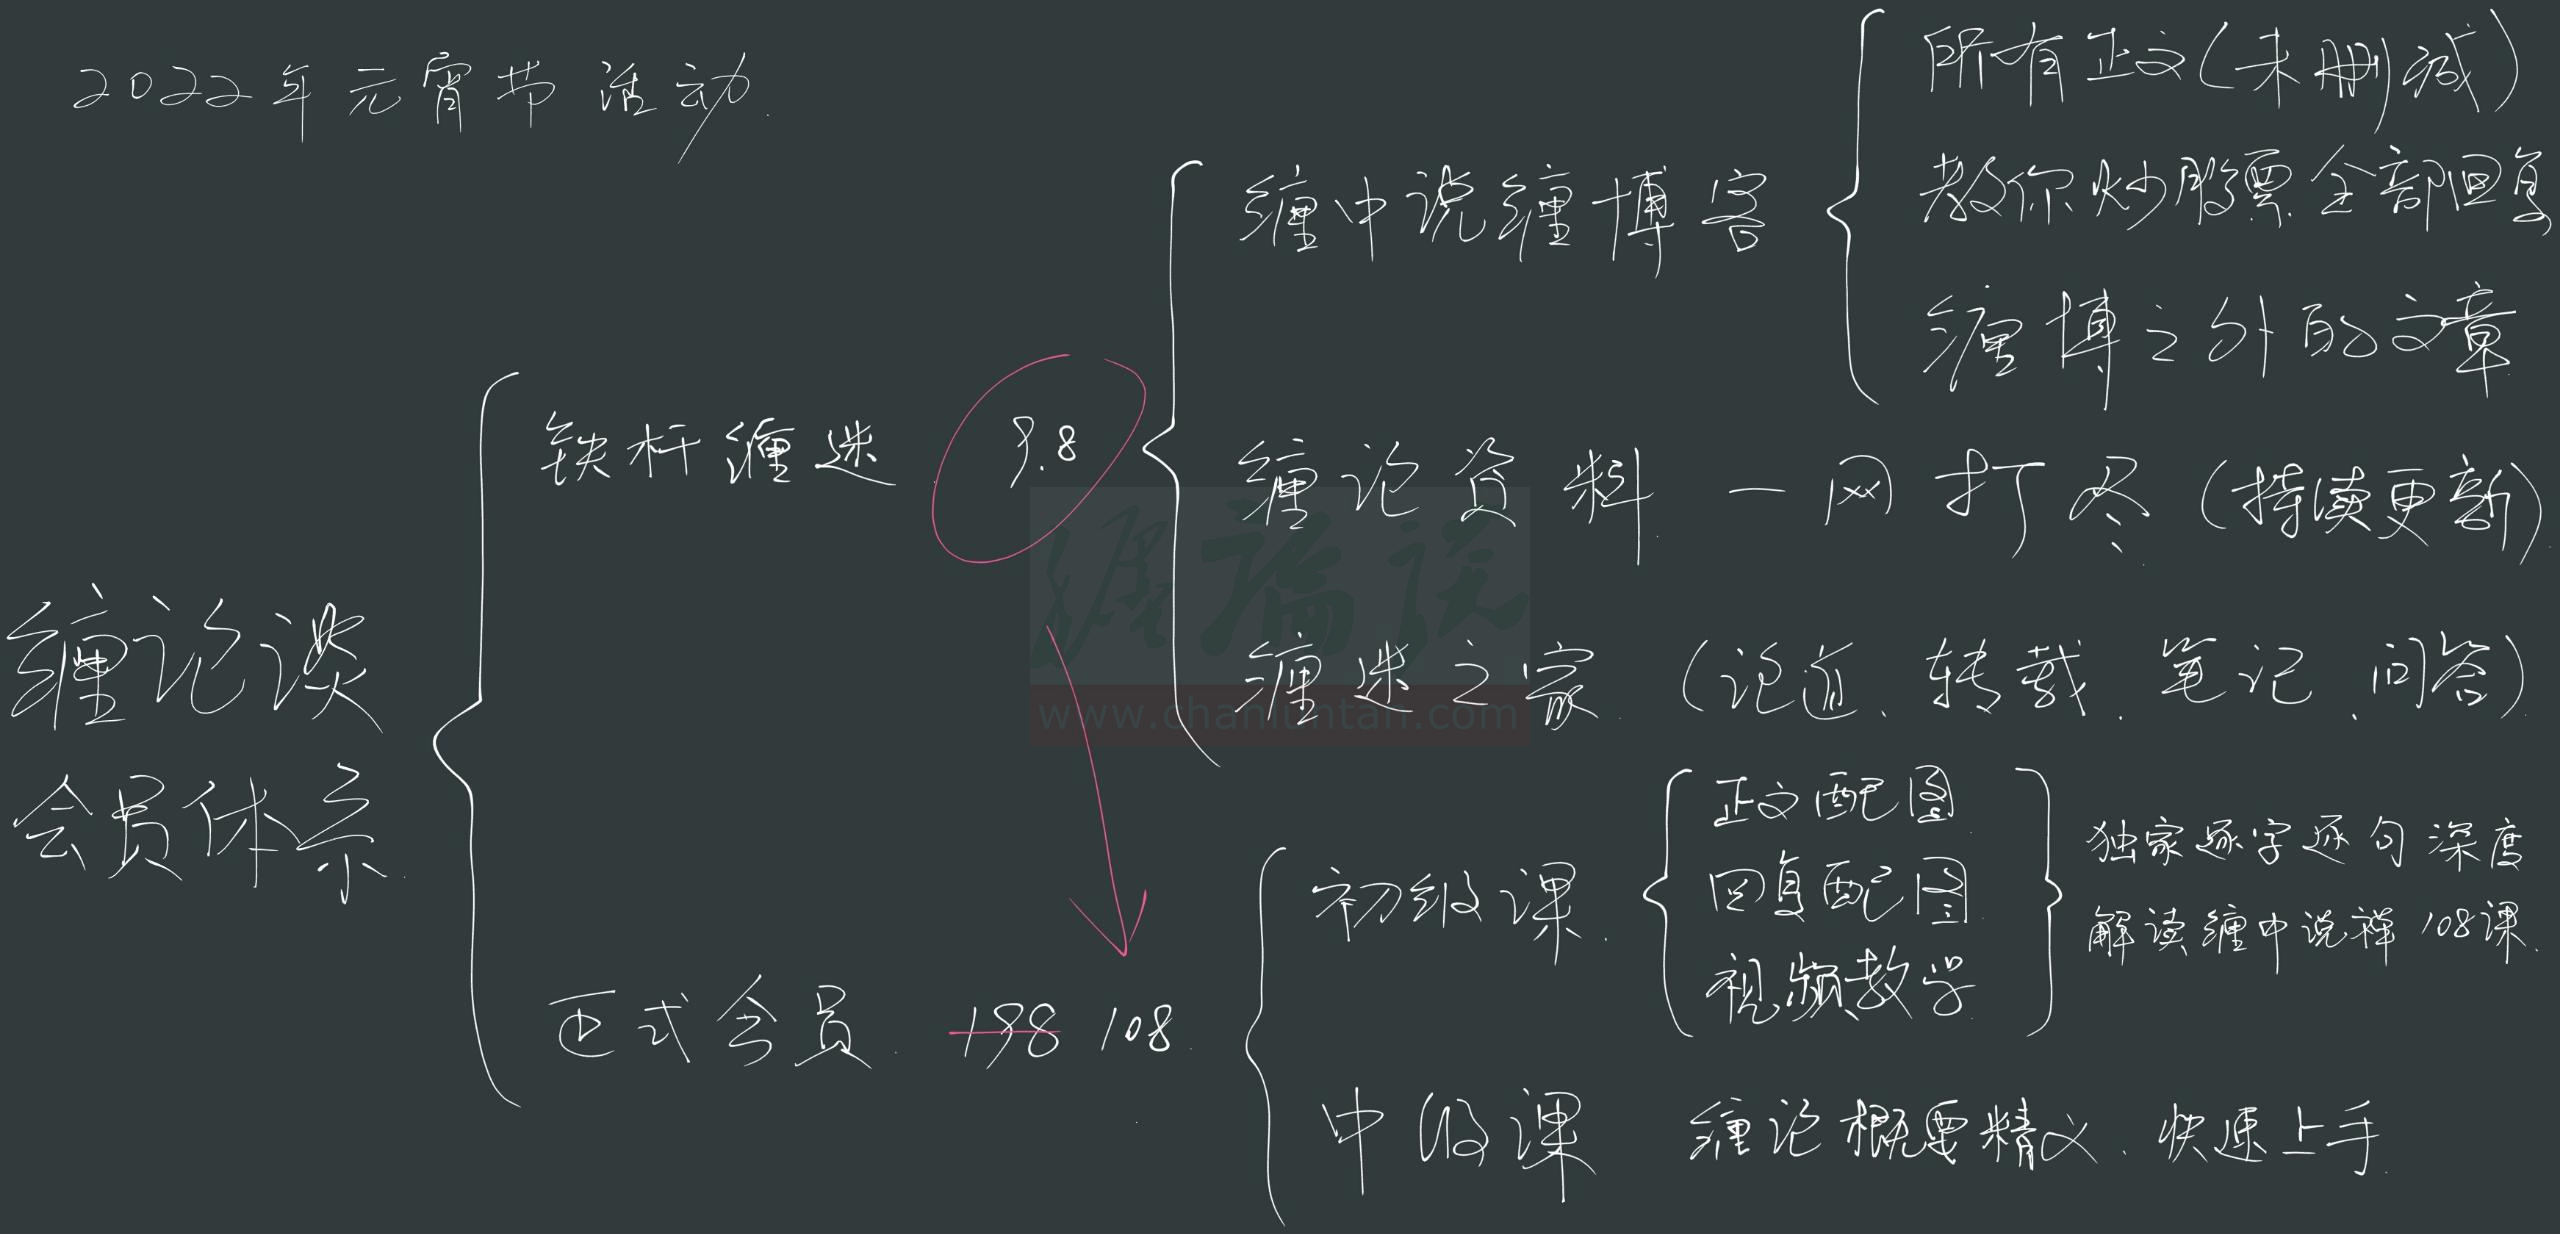 2022年元宵节活动
缠论谈
会员体系
铁杆缠迷 9.8
缠中说缠博客
所有正文(未删减)
教你炒股票全部回复
缠博之外的文章
缠论资料一网打尽(持续更新)
缠迷之家(论道、转载、笔记、问答)
正式会员 198 108
初级课
正文配图
回复配图
视频教学
独家逐字逐句深度
解读缠中说禅108课
中级课 缠论概要精义、快速上手
纏論談
www.chanluntan.com